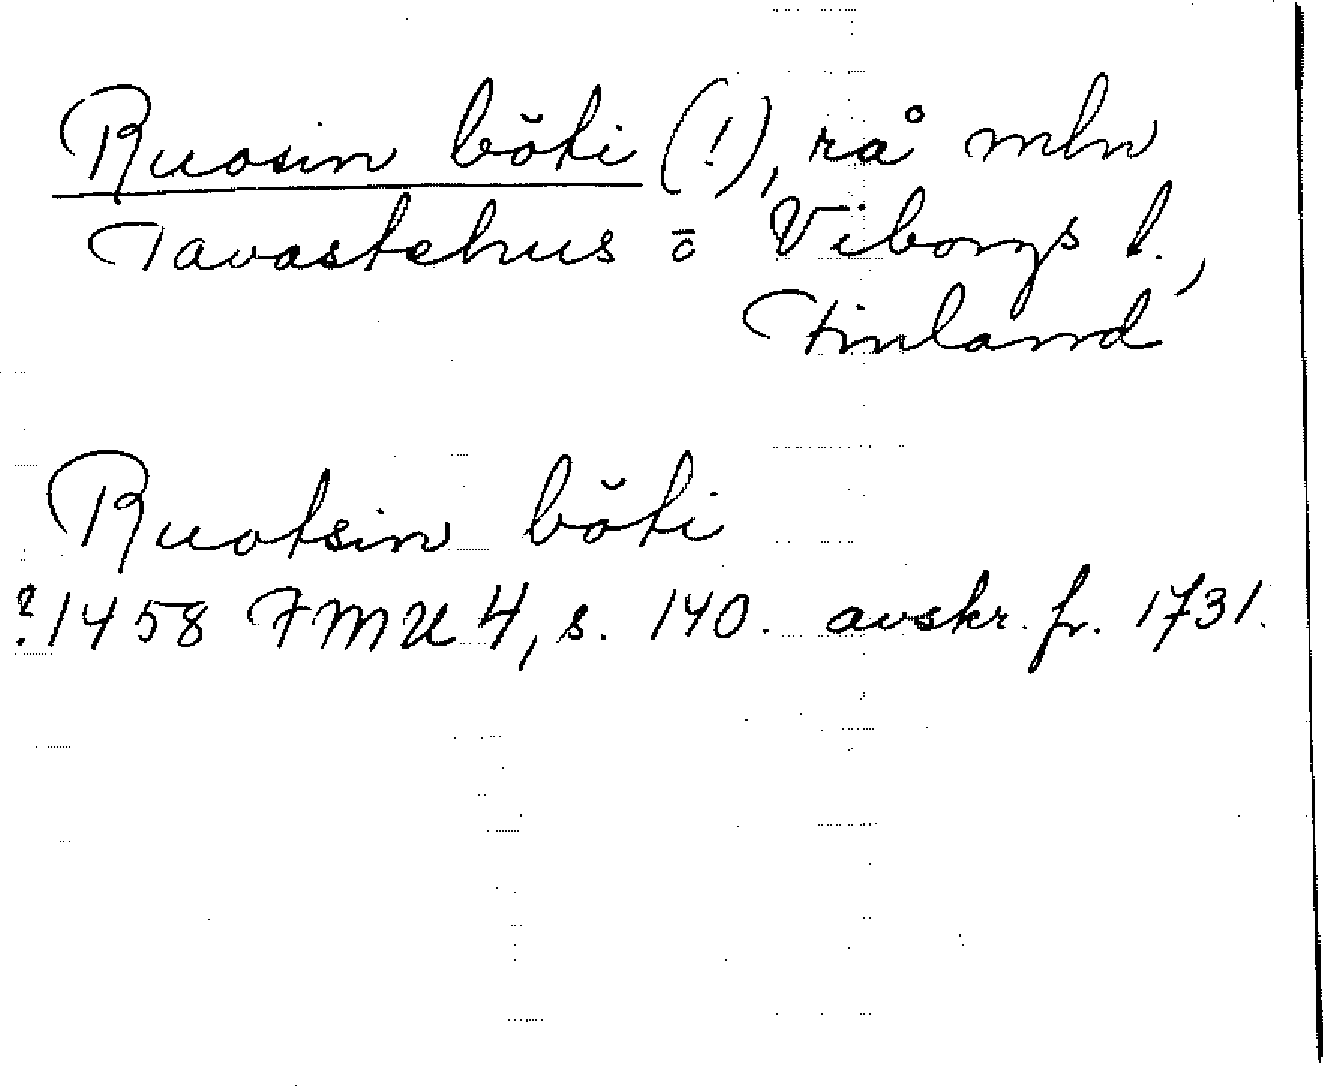 Ruosin bŏti (!), rå mln
Tavastehus o Viborgs l.,
Finland
Ruotsin bŏti
?1458 FMU 4, s. 140. avskr. fr. 1731.